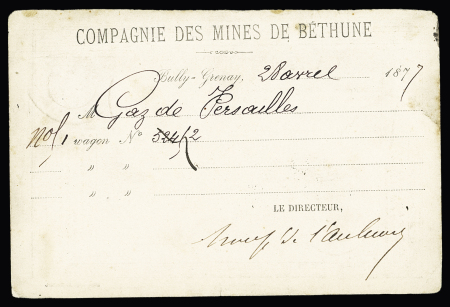 COMPAGNIE DES MINES DE BÉTHUNE
Bully-Grenay, 2 avril 1877
M Gaz de Versailles
wagon N°
" "
" "
LE DIRECTEUR,